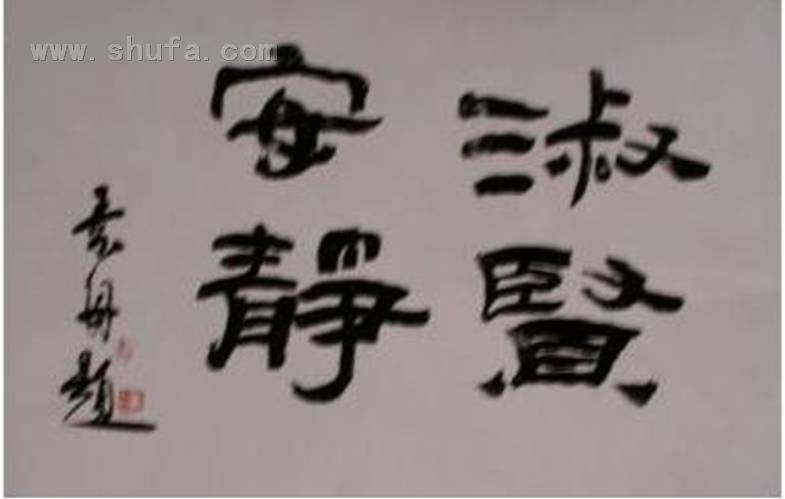 www.shufa.com
淑賢
安靜
袁舟題